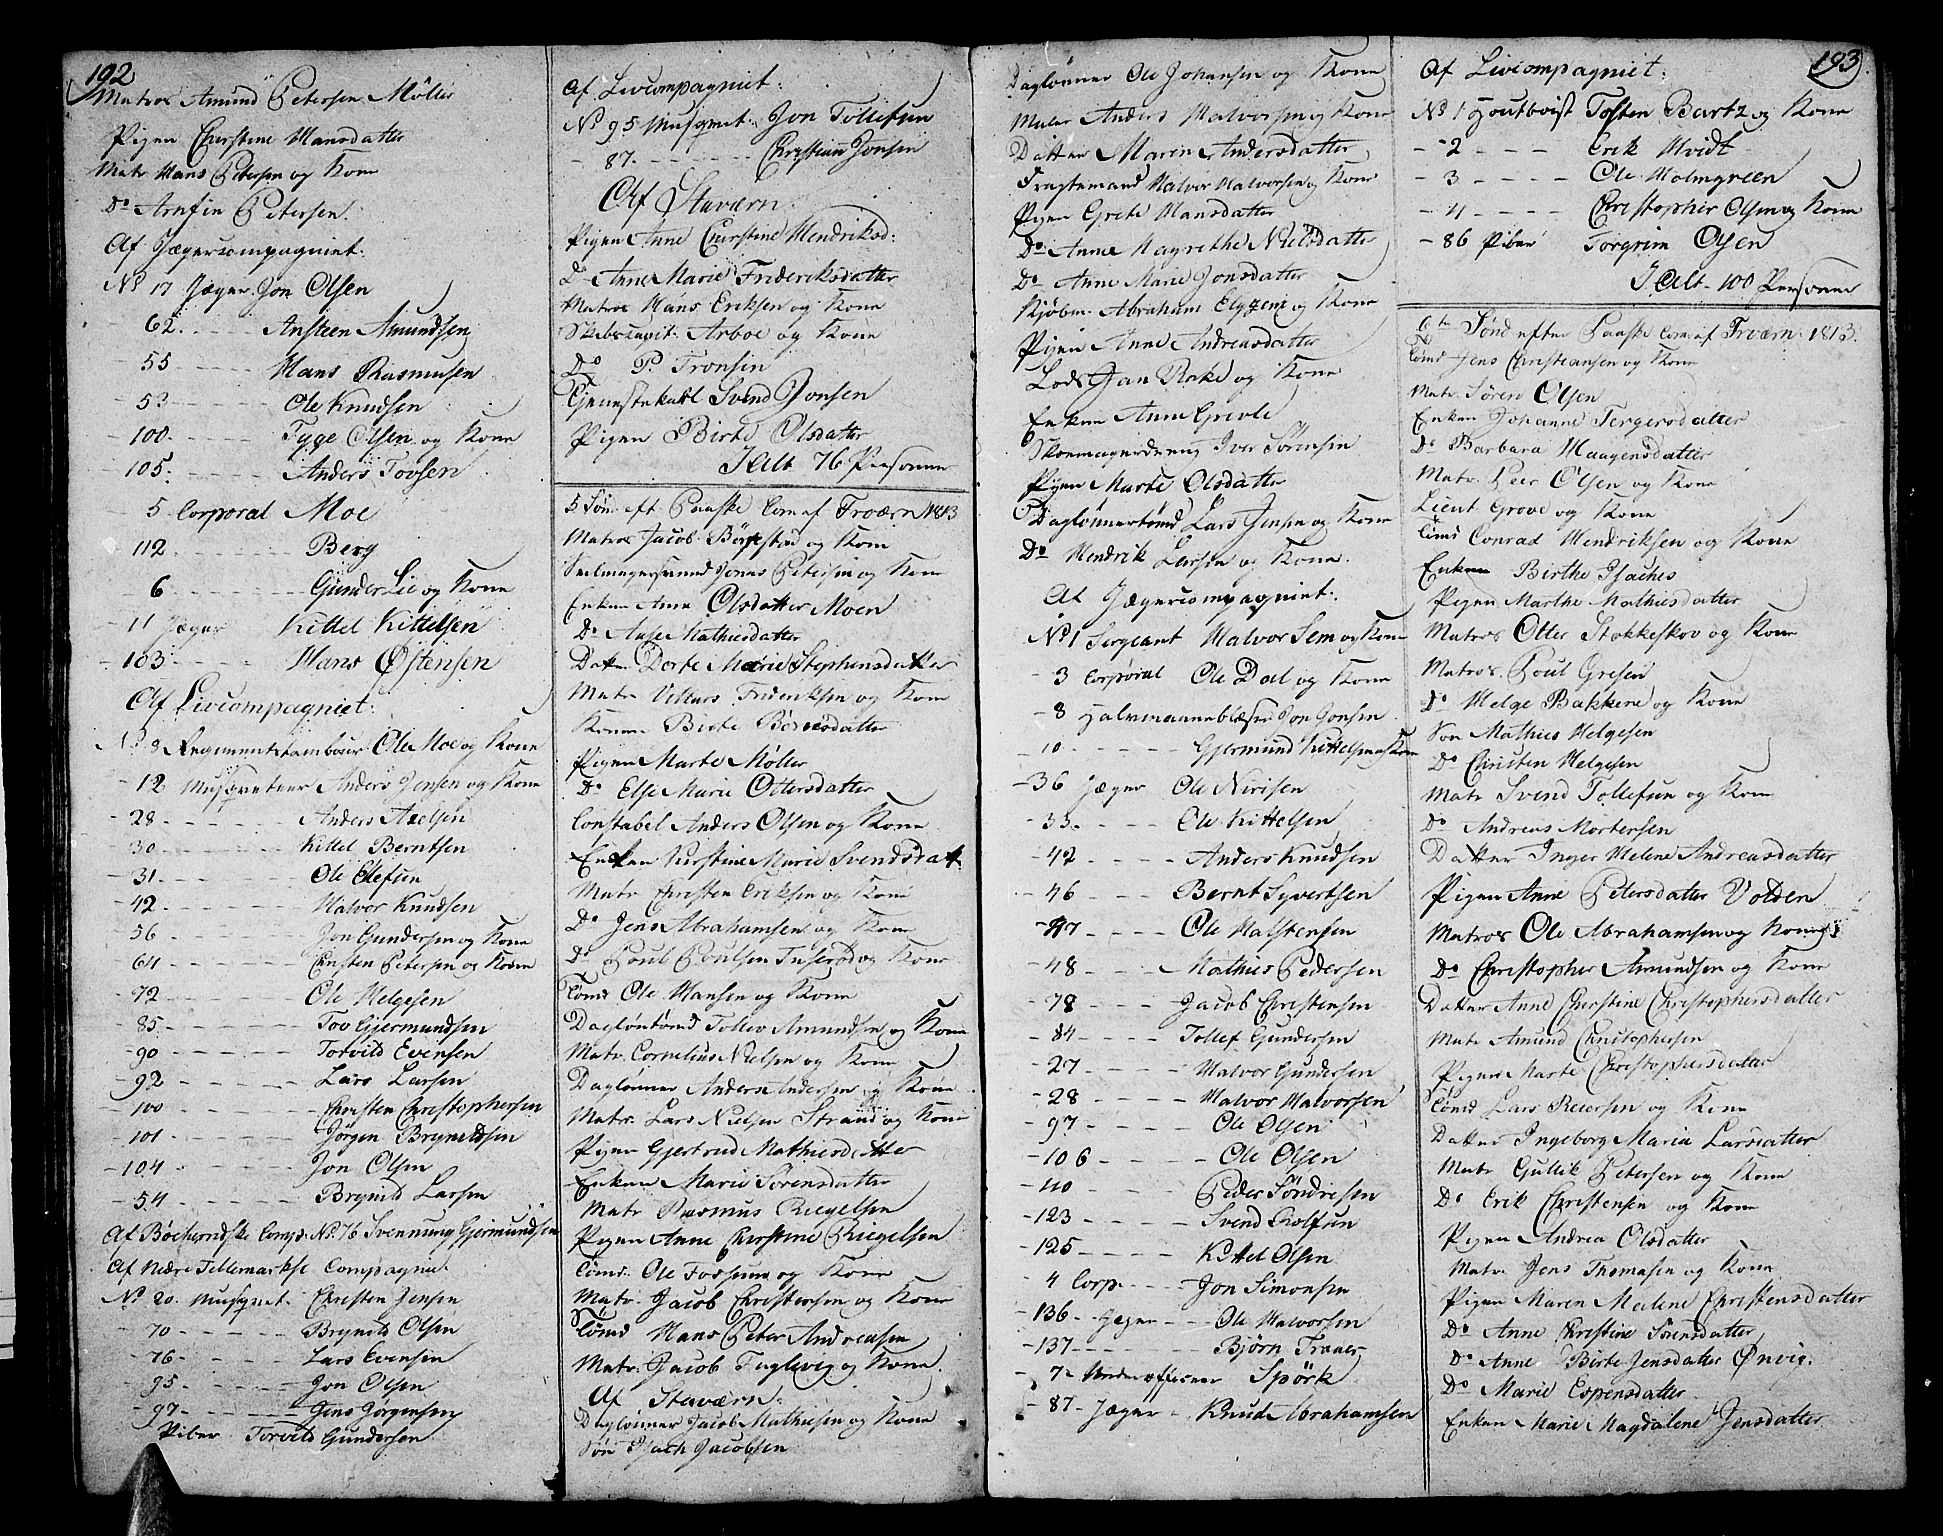 192
Matros Amund Petersen Möller
Pigen Christine Hansdatter
Matr Hans Petersen og Kone
Do Arnfin Petersen.
Af Jægercompagniet:
No 17 Jæger Jon Olsen
62. Ansteen Amundsen
55 Hans Rasmusen
53 Ole Knudsen
100. Tyge Olsen og Kone
105. Anders Tovsen
5 Corporal Moe
112 Berg
6 Gunder Lie og Kone
11 Jæger Kittel Kittelsen
103 Hans Östensen
Af Livcompagniet:
No 8 Regimentstambour Ole Moe og Kone
12 Musqveteer Anders Jensen og Kone
28 Anders Axelsen
30 Kittel Berntsen
31 Ole Ellefsen
42 Halvor Knudsen
56 Jon Gundersen og Kone
64 Christen Petersen og Kone
72 Ole Helgesen
85 Tov Gjermundsen
90 Torvild Evensen
92 Lars Larsen
100 Christen Christophersen
101 Jörgen Bryneldsen
104 Jon Olsen
54 Brynild Larsen
Af Böeherredske Comp: No. 76 Svennung Gjermundsen
Af Nære Tellemarkske Compagnie.
No 20. Musqvet. Christen Jensen
70 Brynild Olsen
76 Lars Evensen
95 Jon Olsen
97 Jens Jörgensen
Piber Torvild Gundersen
Af Livcompagniet:
No 95 Musqvet. Jon Tollefsen
87. Christian Jonsen
Af Staværn:
Pigen Anne Christine Hendriksd:
Do Anne Marie Frideriksdatter
Matros Hans Eriksen og Kone
Skibscapit: Arboe og Kone
Do P. Tronsen
Tjenestekarl Svend Jonsen
Pigen Birte Olsdatter
I Alt 76 Personer
5 Sön: eft Paaske Com. af Froværn 1813
Matros Jacob Börgestad og Kone
Seilmagersvend Jonas Petersen og Kone
Enken Anne Olsdatter Moen
Do Aase Mathiesdatter
Datter Dorte Marie Stephensdatter
Matr. Villars Frideriksen og Kone
Konen Birte Börresdatter
Pigen Marte Möller
Do Else Marie Ottersdatter
Constabel Anders Olsen og Kone
Enken Kirstine Marie Svendsdatt
Matr Christen Eriksen og Kone
Do Jens Abrahamsen og Kone
Do Poul Poulsen Tuseröd og Kone
Tömd Ole Hansen og Kone
Daglöntömd Tollev Amundsen og Kone
Matr. Cornelius Nielsen og Kone
Daglönner Anders Andersen og Kone
Matr. Lars Nielsen Strand og Kone
Pigen Gjertrud Mathiesdatter
Enken Marie Sörensdatter
Matr Rasmus Riegelsen
Pigen Anne Christine Riegelsen
Tömd. Ole Fossum og Kone
Matr. Jacob Christensen og Kone
Tömd Hans Peter Andreasen
Matr. Jacob Fuglevig og Kone.
Af Staværn:
Daglönner Jacob Mathiesen og Kone
Sön Isach Jacobsen
193
Daglönner Ole Johansen og Kone
Maler Anders Halvorsen og Kone
Datter Maren Andersdatter
Fragtemand Halvor Halvorsen og Kone
Pigen Grete Hansdatter
Do Anne Magrethe Nielsdatter
Do Anne Marie Jonsdatter
Kjöbm. Abraham Elyzem og Kone
Pigen Anne Andreasdatter
Lods Jan Rake og Kone
Enken Anne Grevle
Skoemagerdreng Iver Sörensen
Pigen Marte Olsdatter
Daglönnertömd Lars Jensen og Kone
Do Hendrik Larsen og Kone.
Af Jægercompagniet:
No 1 Sergeant Halvor Sem og Kone
3 Corporal Ole Dal og Kone
8 Halvmaaneblæser Jon Jonsen
10 Gjermund Kittelsen og Kone
36 Jæger Ole Nirisen
33. Ole Kittelsen
42 Anders Knudsen
46 Bernt Syvertsen
47 Ole Halstensen
48 Mathies Pedersen
78 Jacob Christensen
84 Tollef Gundersen
27 Halvor Gundersen
28 Halvor Halvorsen
97 Ole Olsen
106 Ole Olsen
110 Peder Söndresen
123 Svend Rolfsen
125 Kittel Olsen
4 Corp. Jon Simonsen
136 Jæger Ole Halvorsen
137 Björn Traaer
7 Underofficeer Spörk
87 Jæger Knud Abrahamsen
Af Livcompagniet:
No 1 Houtboist Tosten Bartz og Kone
2 Erik Hvidt
3 Ole Holmgreen
4 Christopher Olsen og Kone
86 Piber Torgrim Olsen
I Alt 100 Personer
6te Sönd efter Paaske Com. af Froværn 1813.
Tömd Jens Christiansen og Kone
Matr. Sören Olsen
Enken Johanne Tergersdatter
Do Barbara Haagensdatter
Matr. Peer Olsen og Kone
Lieut Grove og Kone
Tömd Conrad Hendriksen og Kone
Enken Birthe Isaches
Pigen Marthe Mathiesdatter
Matros Otter Stokkeskov og Kone
Matros Poul Gresen
Do Helge Bakkene og Kone
Sön Mathies Helgesen
Do Christen Helgesen
Matr Svend Tollefsen og Kone
Do Andreas Mortensen
Datter Inger Helene Andreasdatter
Pigen Anne Petersdatter Volden
Matros Ole Abrahamsen og Kone
Do Christopher Amundsen og Kone
Datter Anne Christine Christophersdatter
Matr Amund Christophersen
Pigen Marte Christophersdatter
Tömd Lars Petersen og Kone
Datter Ingeborg Maria Larsdatter
Matr Gullik Petersen og Kone
Do Erik Christensen og Kone
Pigen Andrea Olsdatter
Matr. Jens Thomasen og Kone
Pigen Maren Malene Christensdatter
Do Anne Christine Sörensdatter
Do Anne Birte Jensdatter Önvig.
Do Marie Espensdatter
Enken Marie Magdalene Jensdatter